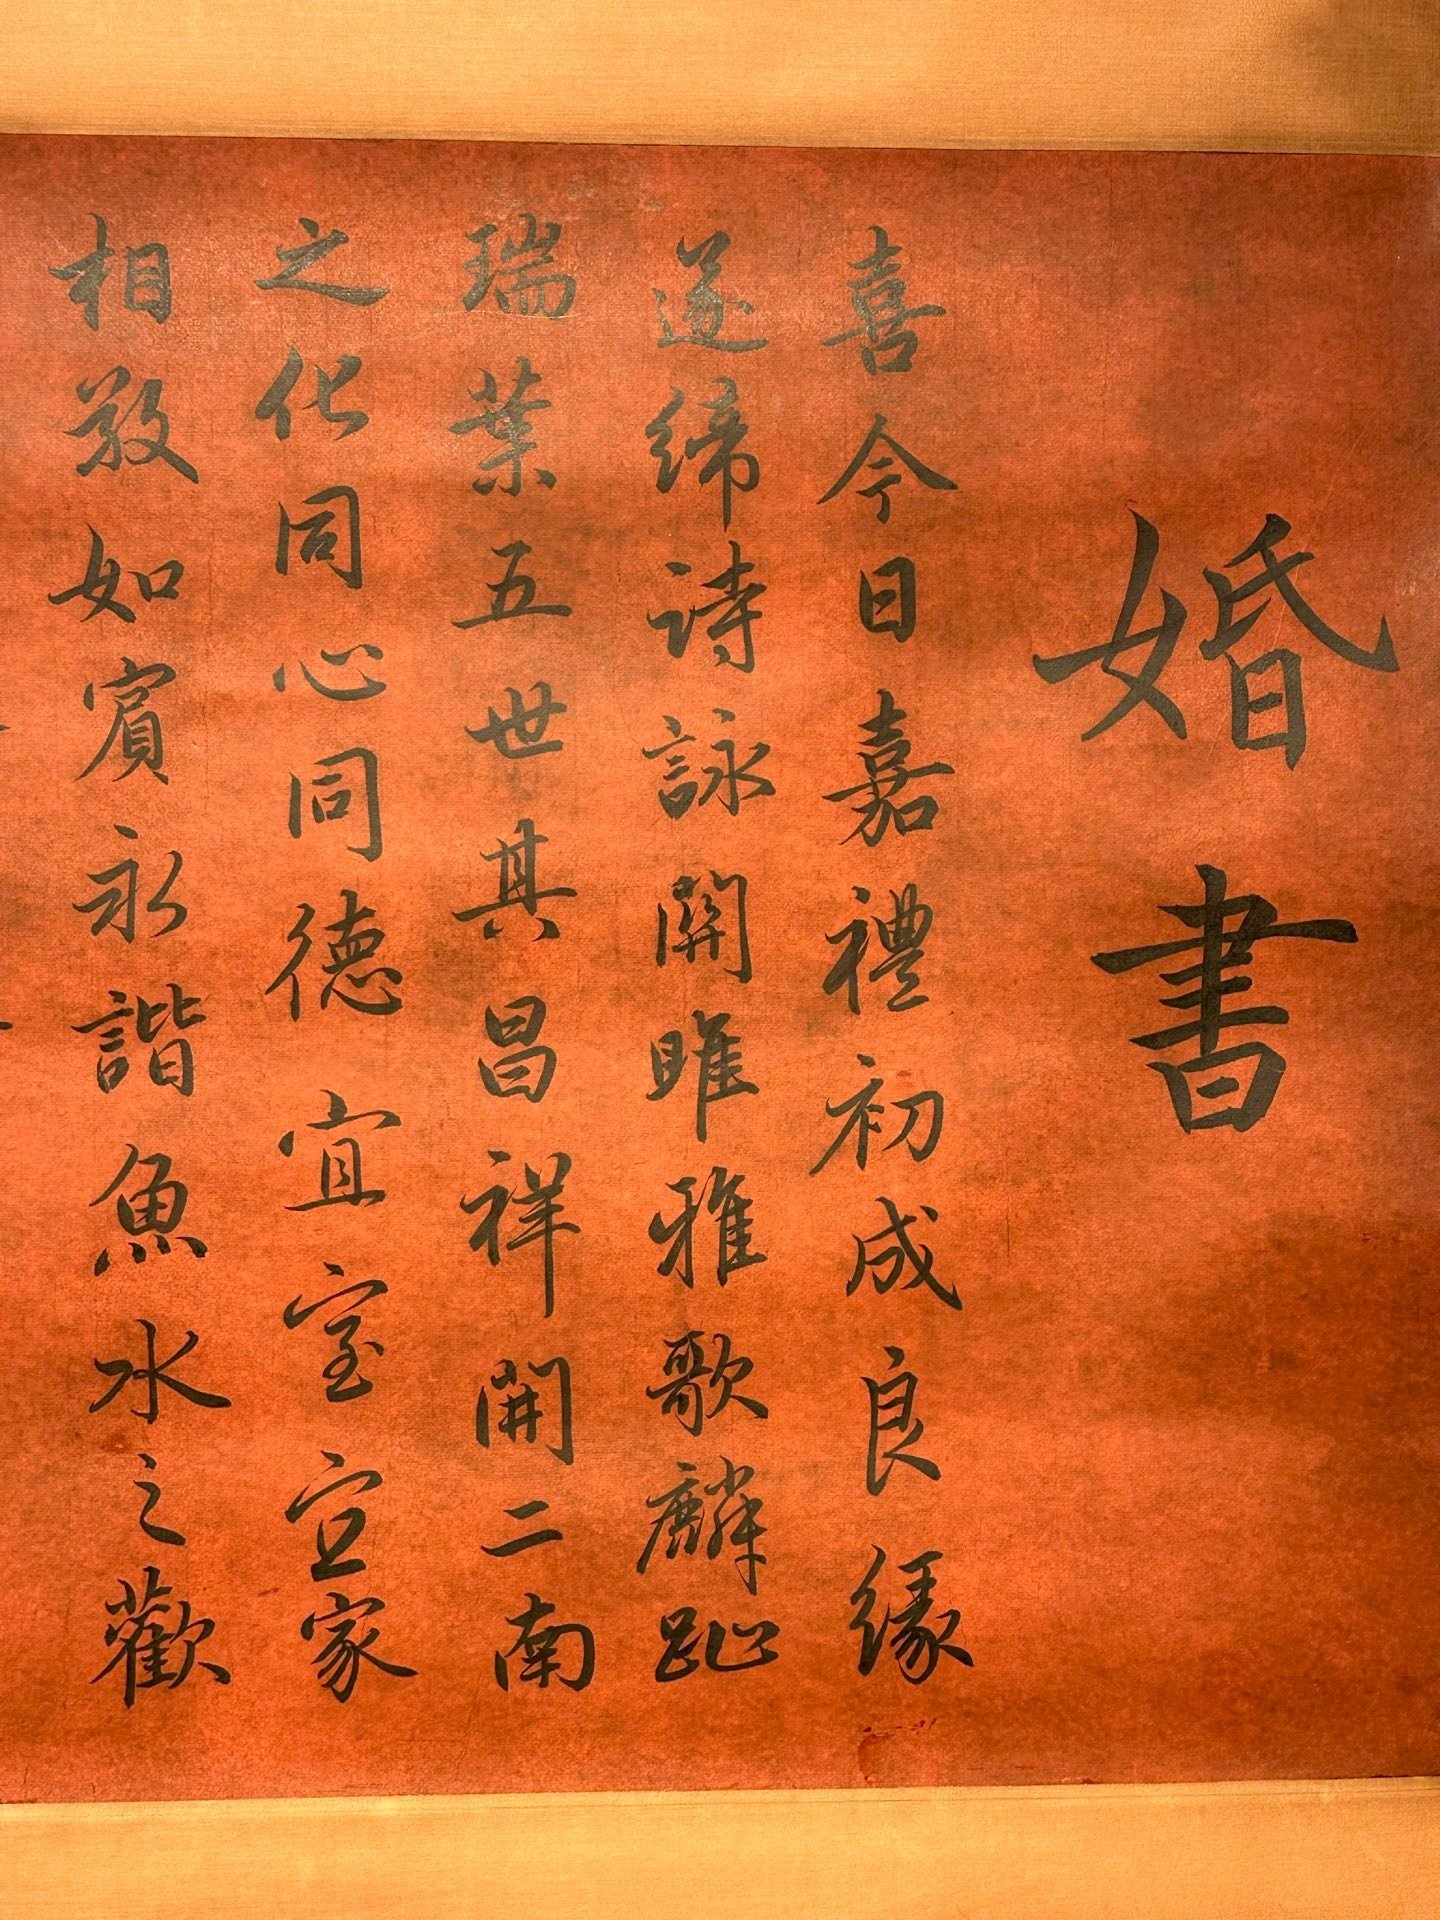 婚書
喜今日嘉禮初成良緣
遂締詩詠關雎雅歌麟趾
瑞葉五世其昌祥開二南
之化同心同德宜室宜家
相敬如賓永諧魚水之歡